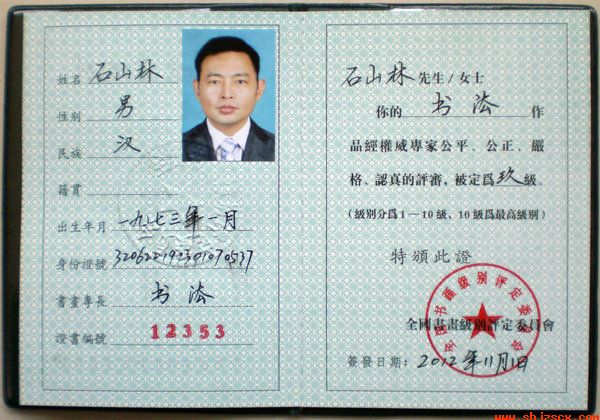 姓名 石山林
性别 男
民族 汉
籍貫
出生年月 一九七三年一月
身份證號 320622197301070537
書畫專長 书法
證書編號 12353
石山林 先生/女士
你的 书法 作
品經權威專家公平、公正、嚴
格、認真的評審，被定爲玖級。
(級别分爲1—10級，10級爲最高級别)
特頒此證
全国书画级别评定委员会
全國書畫級别評定委員會
簽發日期：2012年11月1日